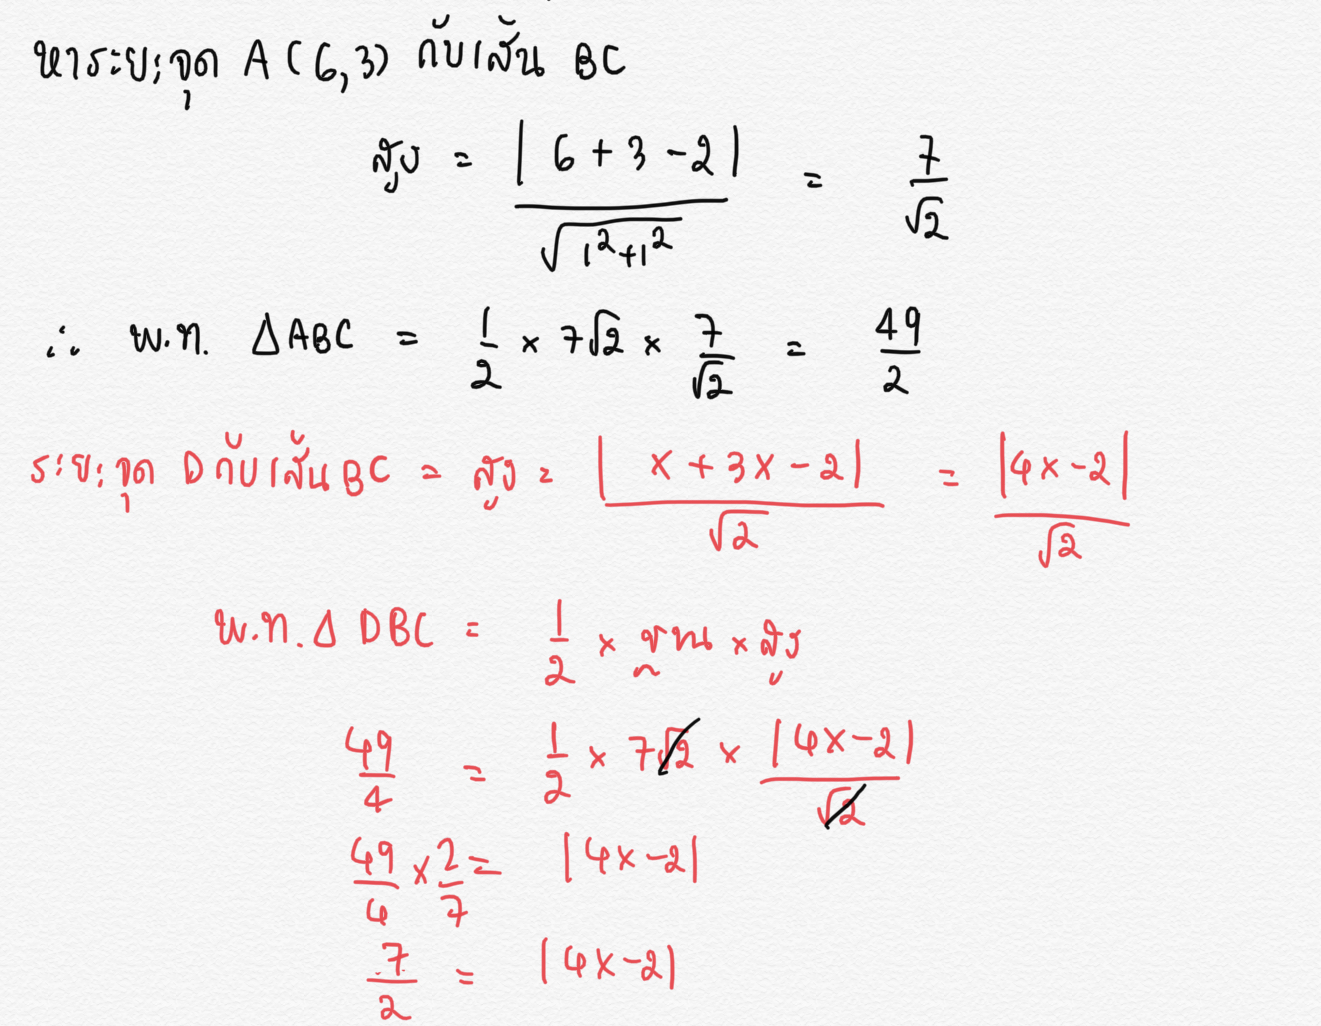 หาระยะจุด A (6,3) กับเส้น BC
สูง = |6+3-2| / √(1²+1²) = 7/√2
∴ พ.ท. △ABC = 1/2 × 7√2 × 7/√2 = 49/2
ระยะจุด D กับเส้น BC = สูง = |x+3x-2| / √2 = |4x-2| / √2
พ.ท. △ DBC = 1/2 × ฐาน × สูง
49/4 = 1/2 × 7√2 × |4x-2| / √2
49/4 × 2/7 = |4x-2|
7/2 = |4x-2|